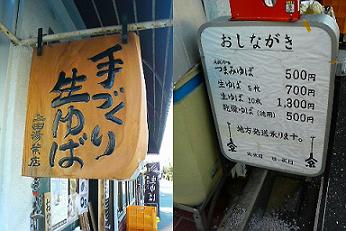 手づくり
生ゆば
上田湯葉店
おしながき
つまみゆば 500円
生ゆば 5枚 700円
生ゆば 10枚 1,300円
乾燥ゆば(徳用) 500円
地方発送承ります。